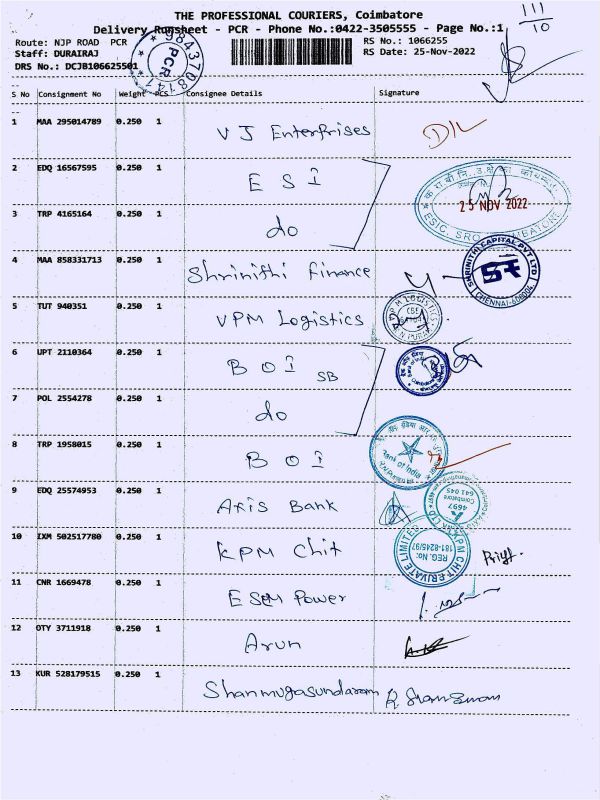 THE PROFESSIONAL COURIERS, Coimbatore
Delivery Runsheet - PCR - Phone No.:0422-3505555 - Page No.:1
111/10
Route: NJP ROAD PCR
RS No.: 1066255
Staff: DURAIRAJ
RS Date: 25-Nov-2022
DRS No.: DCJB106625501
PCR
S No Consignment No Weight PCS Consignee Details Signature
1 MAA 295014789 0.250 1 V J Enterprises D/L
2 EDQ 16567595 0.250 1 E S I
25 NOV 2022
3 TRP 4165164 0.250 1 do
4 MAA 858331713 0.250 1 Shrinithi Finance
SHRINITHI CAPITAL PVT LTD
CHENNAI-600004
5 TUT 940351 0.250 1 VPM Logistics
6 UPT 2110364 0.250 1 B O I SB
7 POL 2554278 0.250 1 do
8 TRP 1958015 0.250 1 B O I
Bank of India
9 EDQ 25574953 0.250 1 Axis Bank
4697
Coimbatore
641 045
10 IXM 502517780 0.250 1 KPM Chit
KPM CHIT PRIVATE LIMITED
REG. No:
181-8245/97
11 CNR 1669478 0.250 1 ESEM Power
12 OTY 3711918 0.250 1 Arun
13 KUR 528179515 0.250 1 Shanmugasundaram